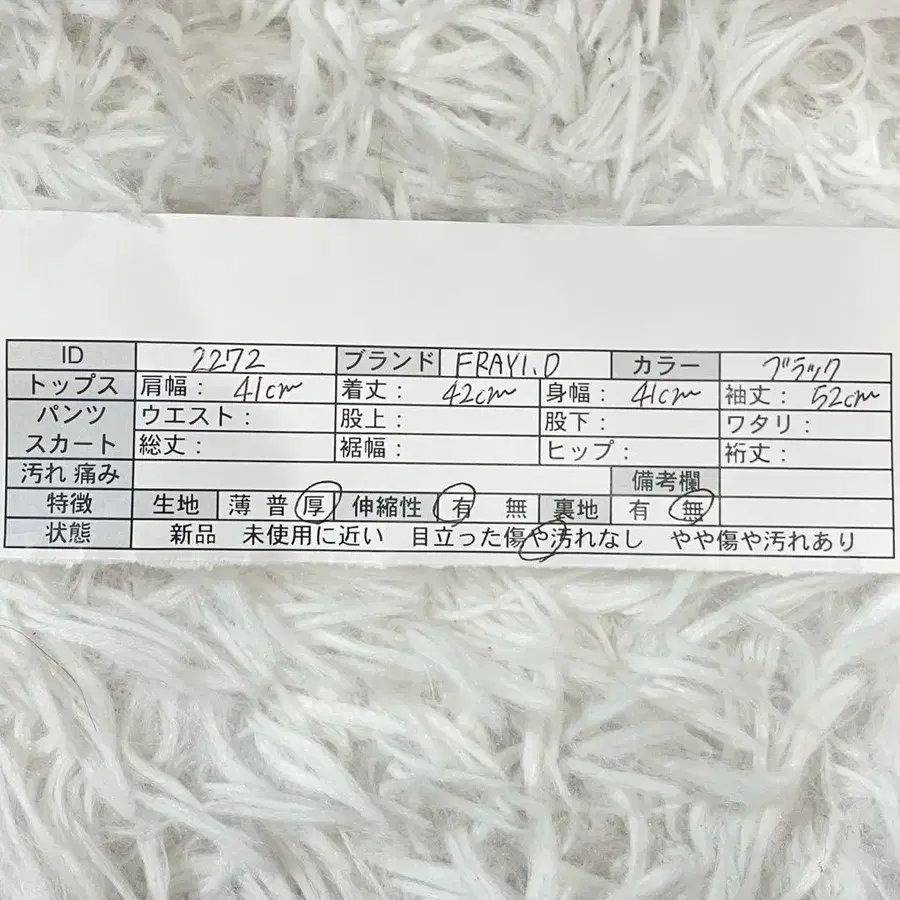 ID 2272 ブランド FRAY I.D カラー ブラック
トップス 肩幅： 41cm 着丈： 42cm 身幅： 41cm 袖丈： 52cm
パンツ ウエスト： 股上： 股下： ワタリ：
スカート 総丈： 裾幅： ヒップ： 裄丈：
汚れ 痛み 備考欄
特徴 生地 薄 普 厚 伸縮性 有 無 裏地 有 無
状態 新品 未使用に近い 目立った傷や汚れなし やや傷や汚れあり